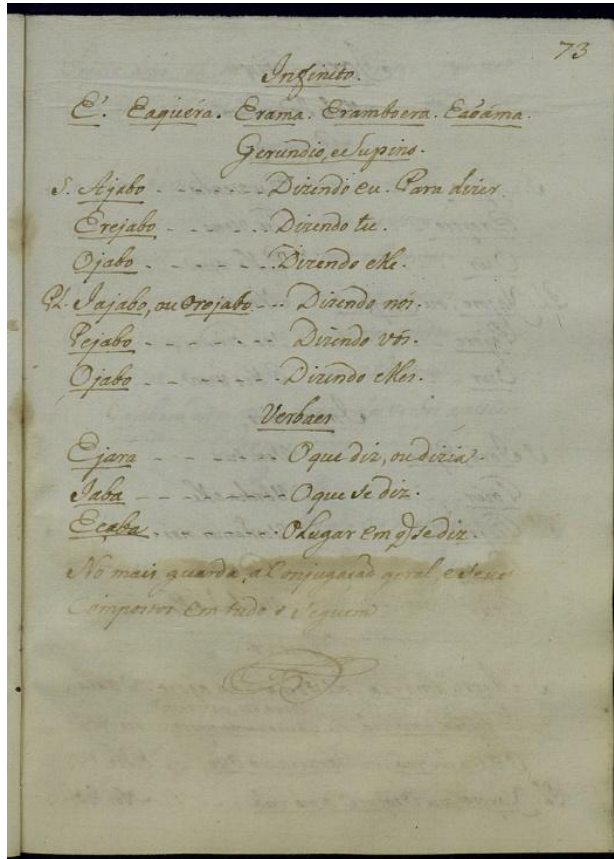 73
Infinito.
E'. Eaguéra. Erama. Eramboera. Eaoáma.
Gerundio, e Supino.
S. Ajabo - - - Dizendo eu. Para dizer.
Erejabo - - - - Dizendo tu.
Ojabo - - - - Dizendo elle.
Pl. Jajabo, ou Orojabo - - - Dizendo nós.
Pejabo - - - - - - Dizendo vós.
Ojabo - - - - - Dizendo elles.
Verbaes
Ejara - - - - O que diz, ou dizia.
Jaba - - - - O que se diz.
Eçaba - O lugar em q̃ se diz.
No mais guarda, a Conjugaçaõ geral, e seus
Compostos em tudo o seguem